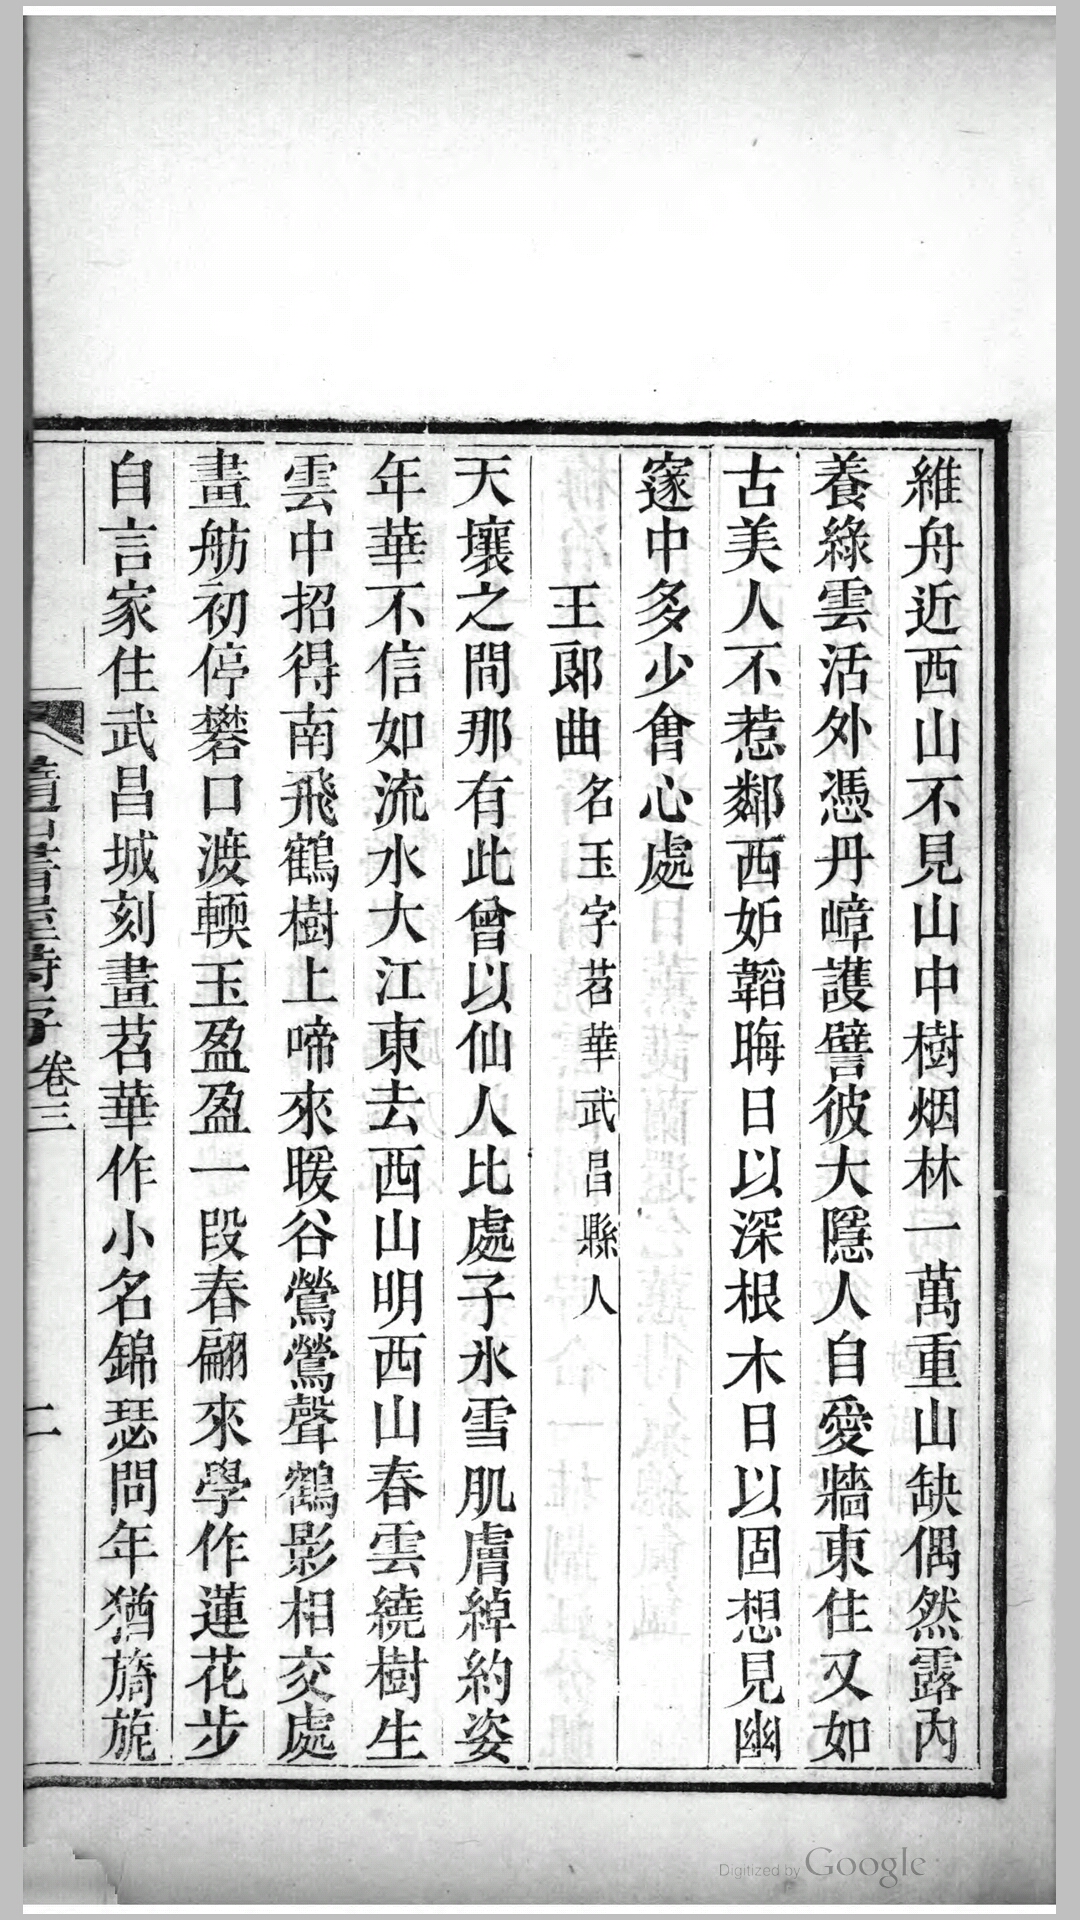 維舟近西山不見山中樹烟林一萬重山缺偶然露內
養綠雲活外憑丹嶂護譬彼大隱人自愛牆東住又如
古美人不惹鄰西妒韜晦日以深根木日以固想見幽
邃中多少會心處
王郎曲名玉字苕華武昌縣人
天壤之間那有此曾以仙人比處子氷雪肌膚綽約姿
年華不信如流水大江東去西山明西山春雲繞樹生
雲中招得南飛鶴樹上啼來暖谷鶯鶯聲鶴影相交處
畫舫初停礬口渡輭玉盈盈一段春翩來學作蓮花步
自言家住武昌城刻畫苕華作小名錦瑟問年猶旖旎
卷三
二
Digitized by Google